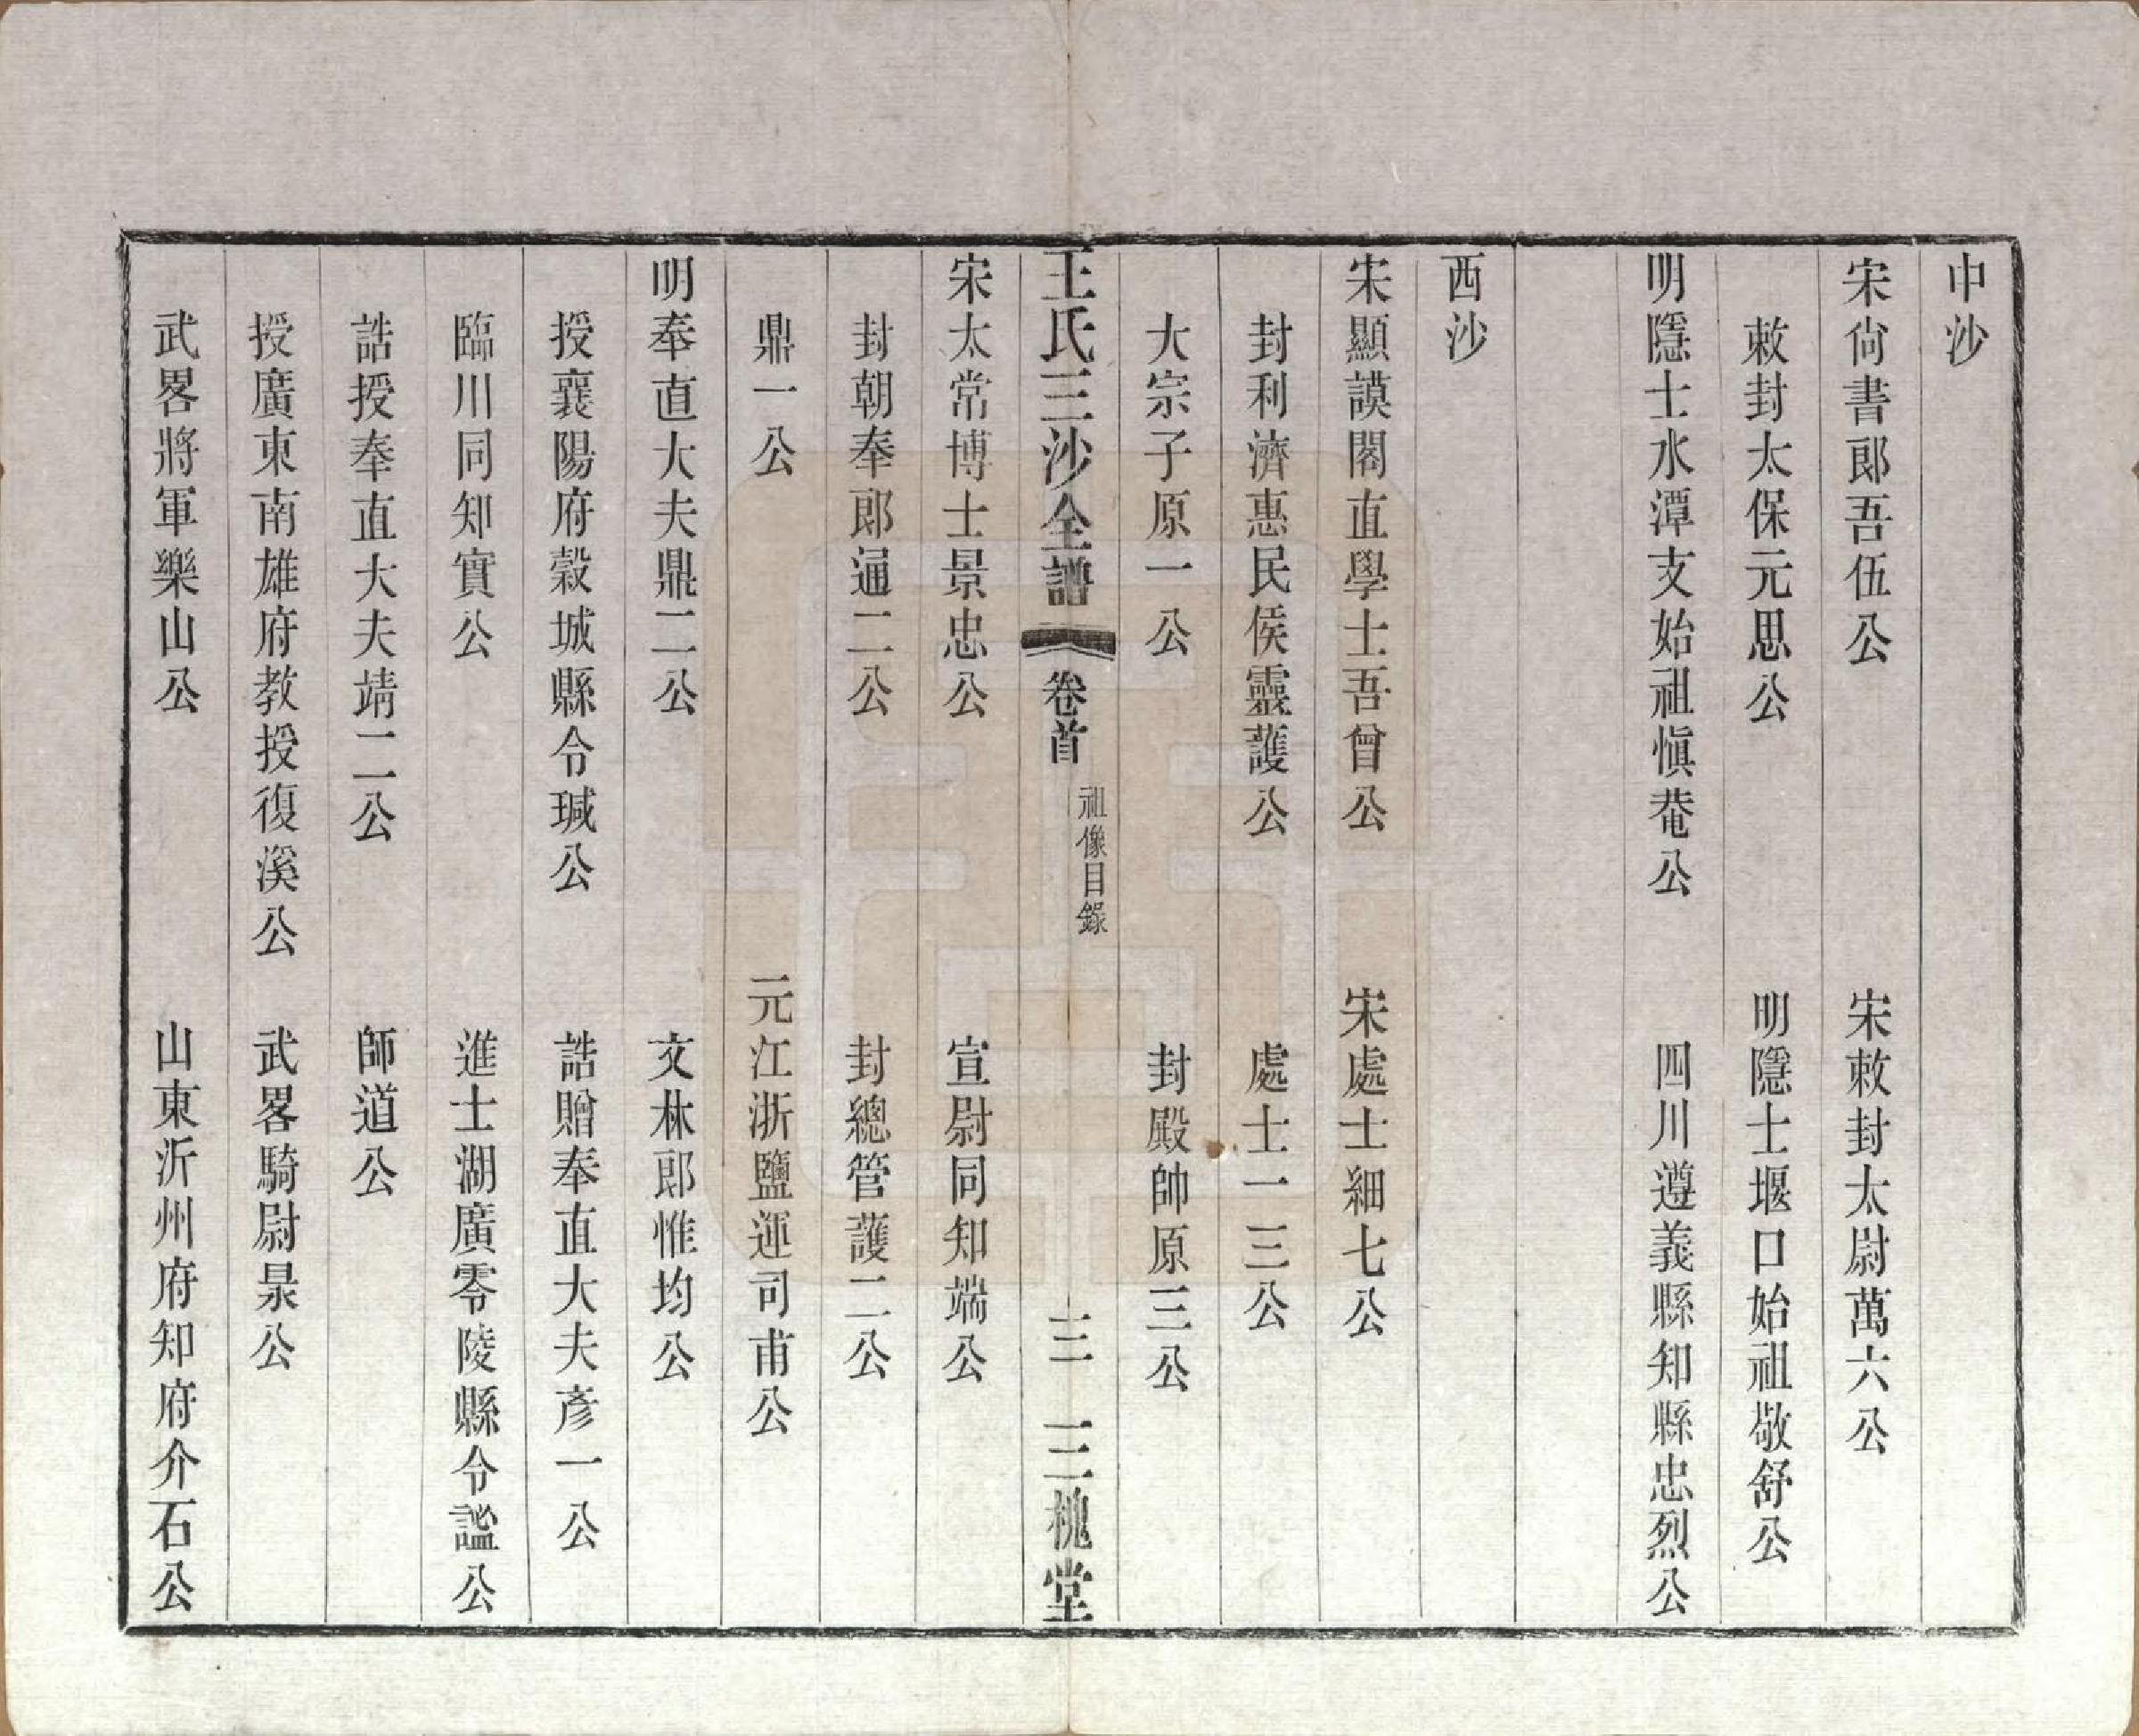 中沙
宋尙書郎吾伍公　宋敕封太尉萬六公
敕封太保元思公　明隱士堰口始祖敬舒公
明隱士水潭支始祖愼菴公　四川遵義縣知縣忠烈公
西沙
宋顯謨閣直學士吾曾公　宋處士細七公
封利濟惠民侯靈護公　處士一三公
大宗子原一公　封殿帥原三公
王氏三沙全譜　卷首　祖像目錄　三　三槐堂
宋太常博士景忠公　宣尉同知端公
封朝奉郎通二公　封總管護二公
鼎一公　元江浙鹽運司甫公
明奉直大夫鼎二公　文林郎惟均公
授襄陽府穀城縣令瑊公　誥贈奉直大夫彥一公
臨川同知實公　進士湖廣零陵縣令謐公
誥授奉直大夫靖二公　師道公
授廣東南雄府教授復溪公　武畧騎尉景公
武畧將軍樂山公　山東沂州府知府介石公